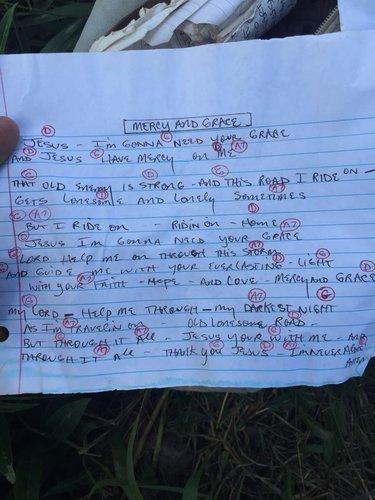 MERCY AND GRACE
JESUS - I'M GONNA NEED YOUR GRACE
AND JESUS HAVE MERCY ON ME
THAT OLD ENEMY IS STRONG - AND THIS ROAD I RIDE ON -
GETS LONESOME AND LONELY SOMETIMES
BUT I RIDE ON - - RIDIN ON - HOME
JESUS I'M GONNA NEED YOUR GRACE
LORD HELP ME ON THROUGH THIS STORM
AND GUIDE ME WITH YOUR EVERLASTING - LIGHT
WITH YOUR FAITH - HOPE - AND LOVE - MERCY AND GRACE
MY LORD - HELP ME THROUGH - MY DARKEST NIGHT
AS I'M TRAVELIN ON - OLD LONESOME ROAD -
BUT THROUGH IT ALL - JESUS YOUR WITH ME - AND
THROUGH IT ALL - THANK YOU JESUS - IM NEVER ALONE